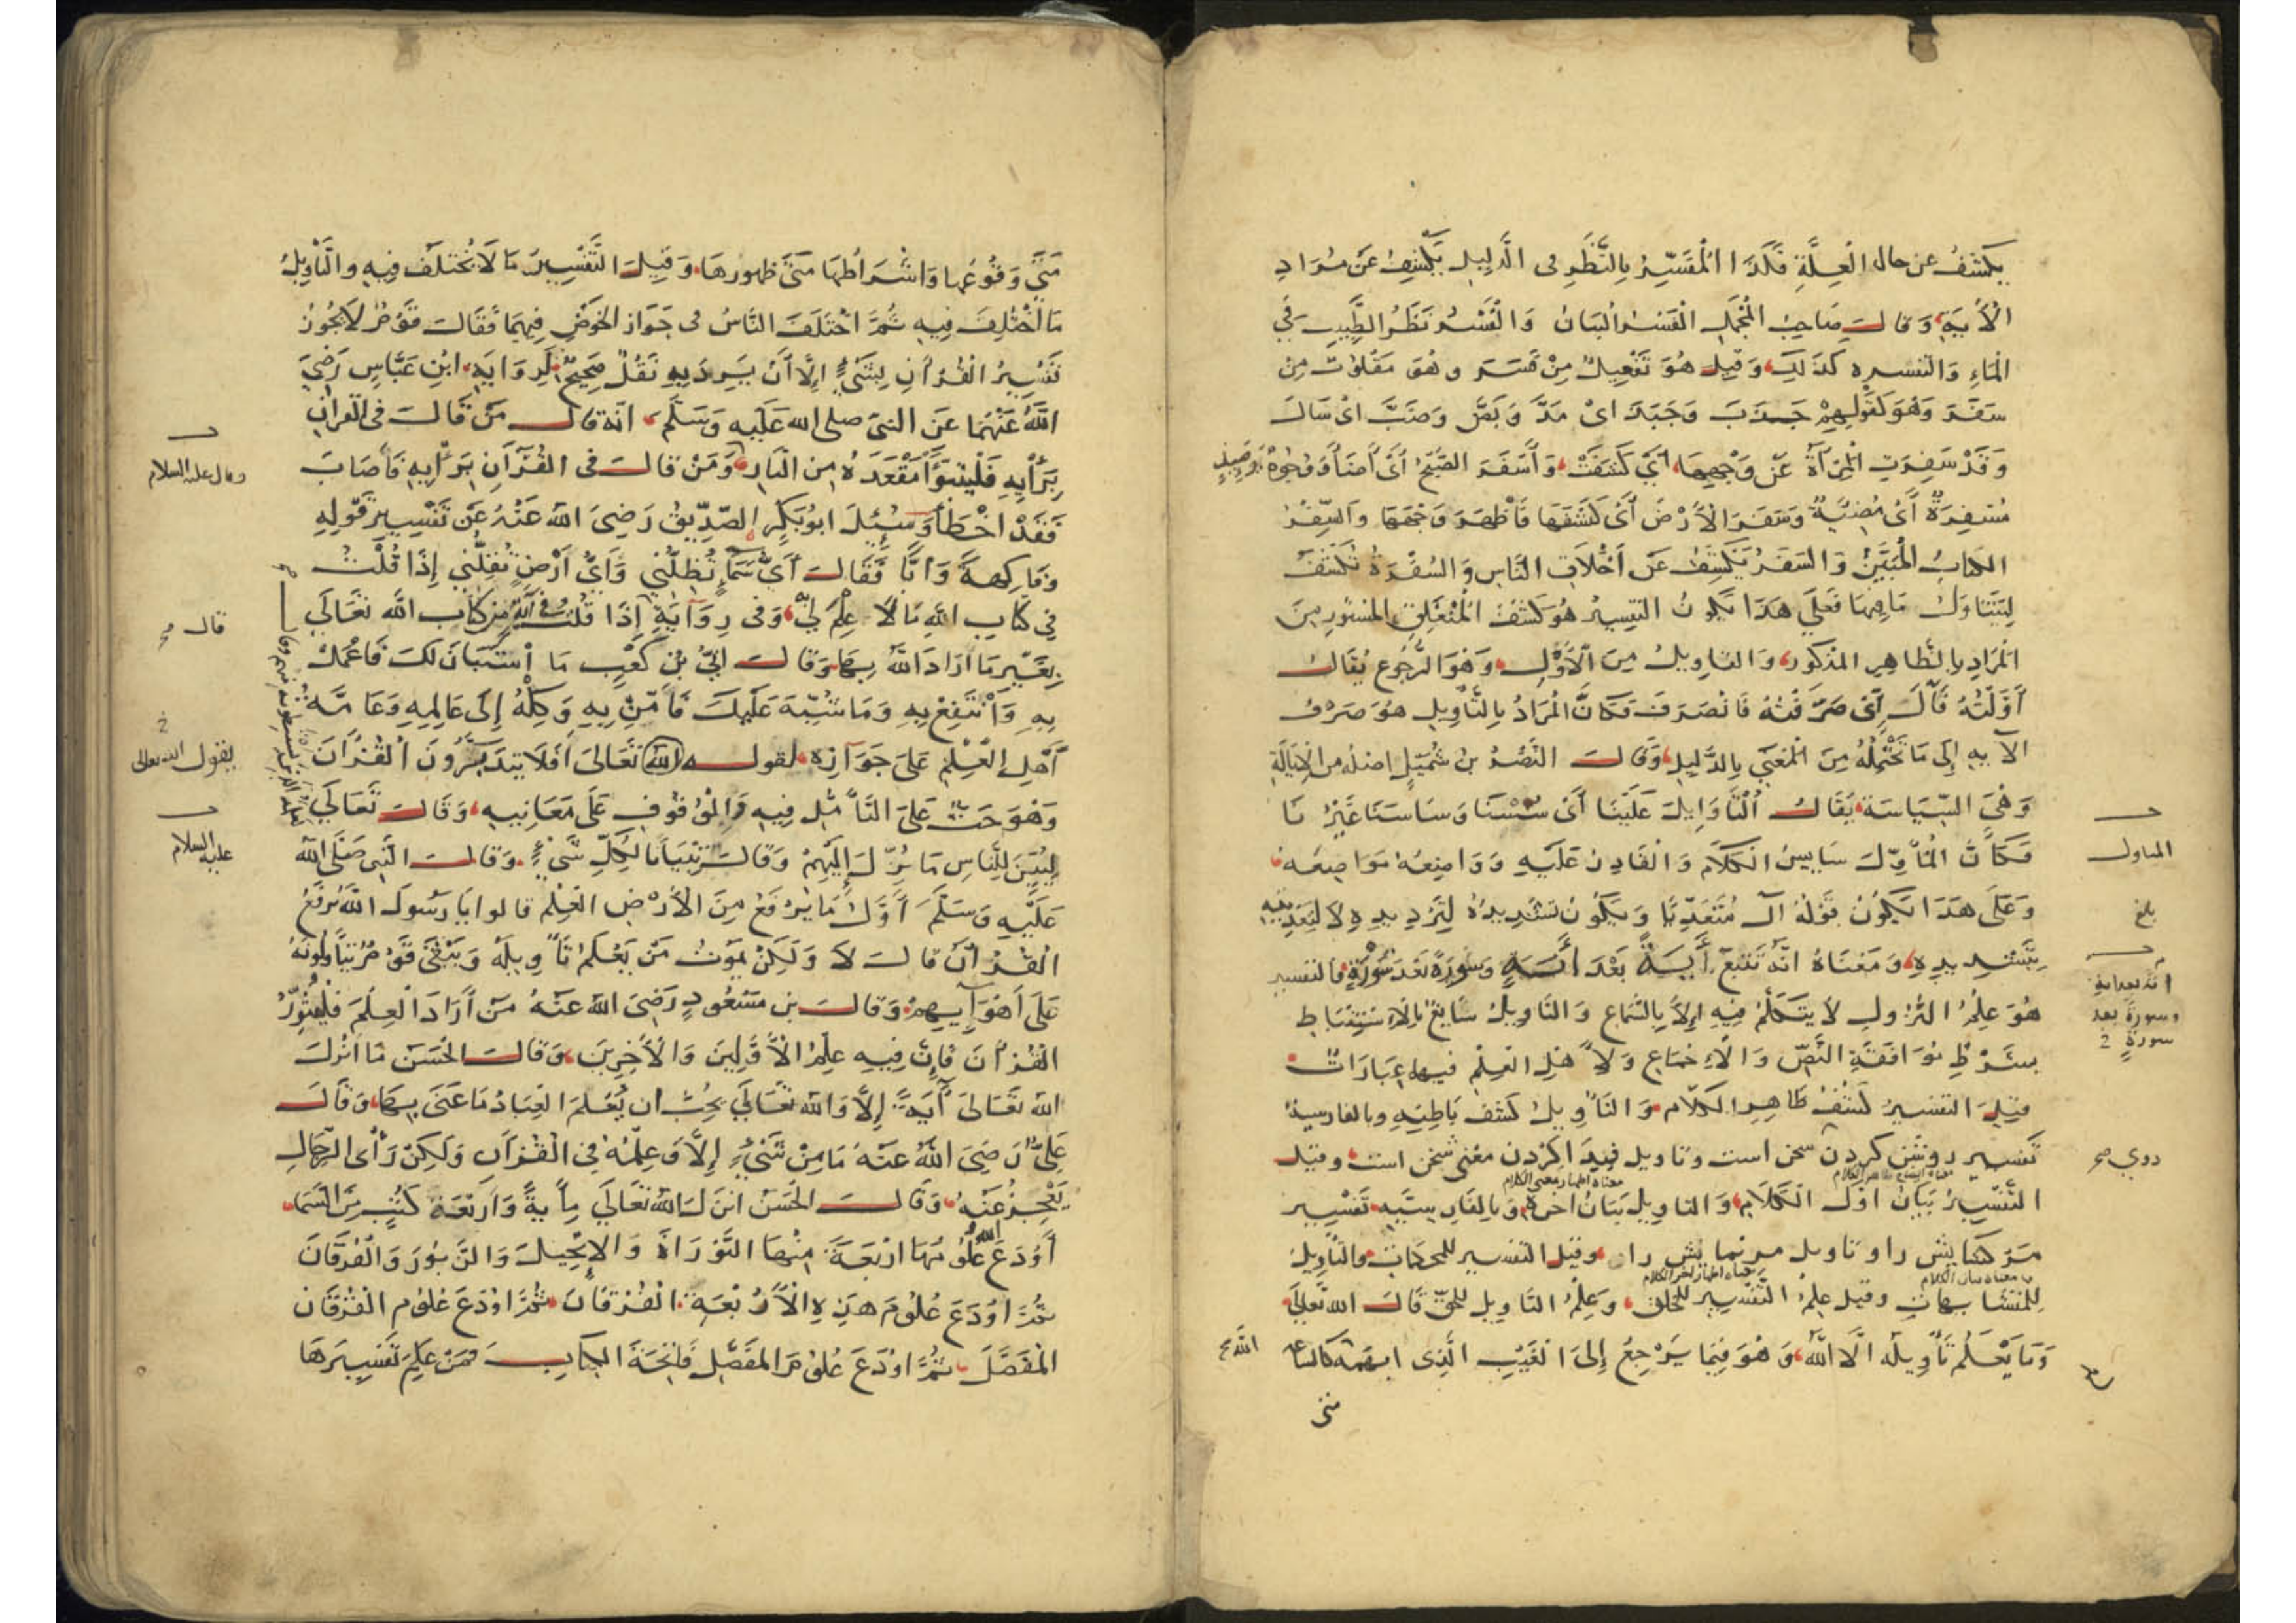 يكشف عن حال العلة فكذا المفسر بالنظر فى الدليل يكشف عن مراد
الآية وقال صاحب المجمل الفسر البيان والفسر نظر الطبيب في
الماء والتفسره كذلك وقيل هو تفعيل من فسر وهو مقلوب من
سفر وهو كقولهم جذب وجبذ اى مدّ وبضّ وضبّ اى سال
وقد سفرت المرآة عن وجهها أي كشفت وأسفر الصبح أى أضاء وجوه يومئذ
مسفرة أى مضيّة وسفر الأرض أى كشفها فأظهر وجهها والسفر
الكتاب المبين والسفر يكشف عن أخلاق الناس والسفرة تكشف
ليتناول ما فيها فعلى هذا يكون التفسير هو كشف المنغلق المستور من
المراد بالظاهر المذكور والتاويل من الأول وهو الرجوع يقال
أوّلته فآل أى صرفته فانصرف فكان المراد بالتأويل هو صرف
الآيه إلى ما تحتمله من المعنى بالدليل وقال النضر بن شميل اصله من الإيالة
وهي السياسة يقال ألنا وإيل علينا أى سسنا وساسنا غيرنا
فكان المأوّل سايس الكلام والقادر عليه وواضعه مواضعه
المتاول
وعلى هذا يكون قوله آل متعديّا ويكون تشديده لترديده لا لتعديته
بتشديده ومعناه انّه تتبع أيةً بعد أيةٍ وسورةً بعد سورةٍ فالتفسير
وسورة بعد
سورة
هو علم النزول لا يتكلّم فيه إلاّ بالسّماع والتاويل سايغ بالاستنباط
بشرط موافقة النصّ والأجماع ولأهل العلم فيها عبارات
قيل التفسير كشف ظاهر الكلام والتأويل كشف باطنه وبالفارسية
تفسير روشن كردن سخن است وتاويل پيدا كردن معنى سخن است وقيل
التّفسير بيان اوّل الكلام والتاويل بيان اخره وبالفارسيّه تفسير
معناه اظهار معنى الكلام
راو تاويل سرنمايش را وقيل التفسير للمحكمات والتأويل
معناه بيان الكلام
معناه اظهار اخر الكلام
للمتشابهات وقيل علم التّفسير للخلق وعلم التاويل للحقّ قال الله تعالى
وما يعلم تأويله الا اللّه وهو فيما يرجع إلى الغيب الّذى ابهمه كالساعة
متى
متى وقوعها واشراطها متى ظهورها وقيل التفسير ما لا يختلف فيه والتأويل
ما اختلف فيه ثمّ اختلف النّاس فى جواز الخوض فيهما فقال قوم لا يجوز
تفسير القرأن بشيءٍ إلّا أن يرد به نقل صحيح لرواية ابن عبّاس رضي
اللّه عنهما عن النبى صلى الله عليه وسلّم انه قال من قال فى القرآن
برأيه فليتبوّأ مقعده من النار ومن قال فى القرآن برأيه فأصاب
وقال عليه السلام
فقد اخطأ وسئل ابو بكر الصدّيق رضي الله عنه عن تفسير قوله
وفاكهةً وأبّا فقال أيّ سماء تظلّني وأيّ أرض تقلّني إذا قلت
في كتاب اللّه ما لا علم لي وفى رواية إذا قلت فى آية من كتاب الله تعالى
قال صح
بغير ما اراد اللّه بها وقال ابيّ بن كعب ما استبان لك فاعمل
به وانتفع به وما شبّه عليك فآمن به وكله إلى عالمه وعامّة
أهل العلم على جوازه لقوله الله تعالى أفلا يتدبّرون القرأن
يقول الله تعالى
وهو حثّ على التأمّل فيه والوقوف على معانيه وقال تعالى
لتبيّن للنّاس ما نزّل إليهم وقال تبيانا لكلّ شيءٍ وقال النّبى صلّى اللّه
عليه السلام
عليه وسلّم أوّل ما يرفع من الأرض العلم قالوا يا رسول اللّه يرفع
القرأن قال لا ولكن يموت من يعلم تأويله ويبقى قوم يتأولونه
على أهوآيهم وقال بن مسعود رضى اللّه عنه من أراد العلم فليثوّر
القرأن فإن فيه علم الأوّلين والأخرين وقال الحسن ما انزل
الله تعالى أيةً إلّا والله تعالى يحبّ ان يعلم العباد ما عنى بها وقال
عليّ رضى الله عنه ما من شىءٍ إلاّ وعلمه في القرآن ولكن رأى الرّجال
يعجز عنه وقال الحسن انزل الله تعالى مأيةً وأربعة كتب من السّماء
أودع الله علومها اربعة منها التّوراة والإنجيل والزبور والفرقان
ثمّ اودع علوم هذه الأربعة الفرقان ثمّ اودع علوم الفرقان
المفصّل ثمّ اودع علوم المفصّل فاتحة الكتاب فمن علم تفسيرها